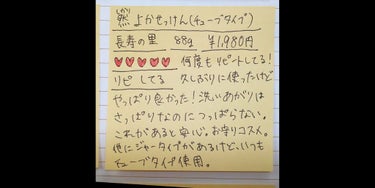 しかり
然 よかせっけん(チューブタイプ)
長寿の里 88g ¥1,980円
♥♥♥♥♥ 何度もリピートしてる!
リピしてる 久しぶりに使ったけど
やっぱり良かった!洗いあがりは
さっぱりなのにつっぱらない。
これがあると安心。お守りコスメ。
他にジャータイプがあるけど、いつも
チューブタイプ使用。